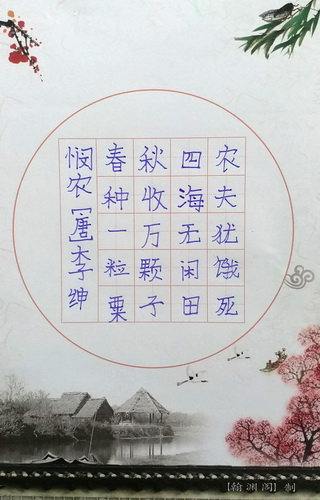 悯农[唐]李绅
春种一粒粟
秋收万颗子
四海无闲田
农夫犹饿死
[翰渊阁] 制